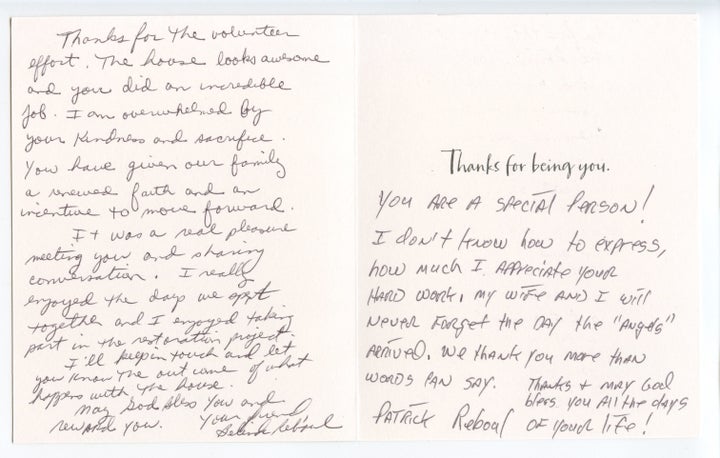 Thanks for the volunteer
effort. The house looks awesome
and you did an incredible
job. I am overwhelmed by
your kindness and sacrifice.
You have given our family
a renewed faith and an
incentive to move forward.
It was a real pleasure
meeting you and sharing
conversation. I really
enjoyed the days we spent
together and I enjoyed taking
part in the restoration project.
I'll keep in touch and let
you know the out come of what
happens with the house.
May God bless you and
reward you. Your friend
Reboul
Thanks for being you.
YOU ARE A SPECIAL PERSON!
I DON'T KNOW HOW TO EXPRESS,
HOW MUCH I APPRECIATE YOUR
HARD WORK, MY WIFE AND I WILL
NEVER FORGET THE DAY THE "ANGELS"
ARRIVED. WE THANK YOU MORE THAN
WORDS CAN SAY. THANKS + MAY GOD
BLESS YOU ALL THE DAYS
PATRICK Reboul OF YOUR LIFE!